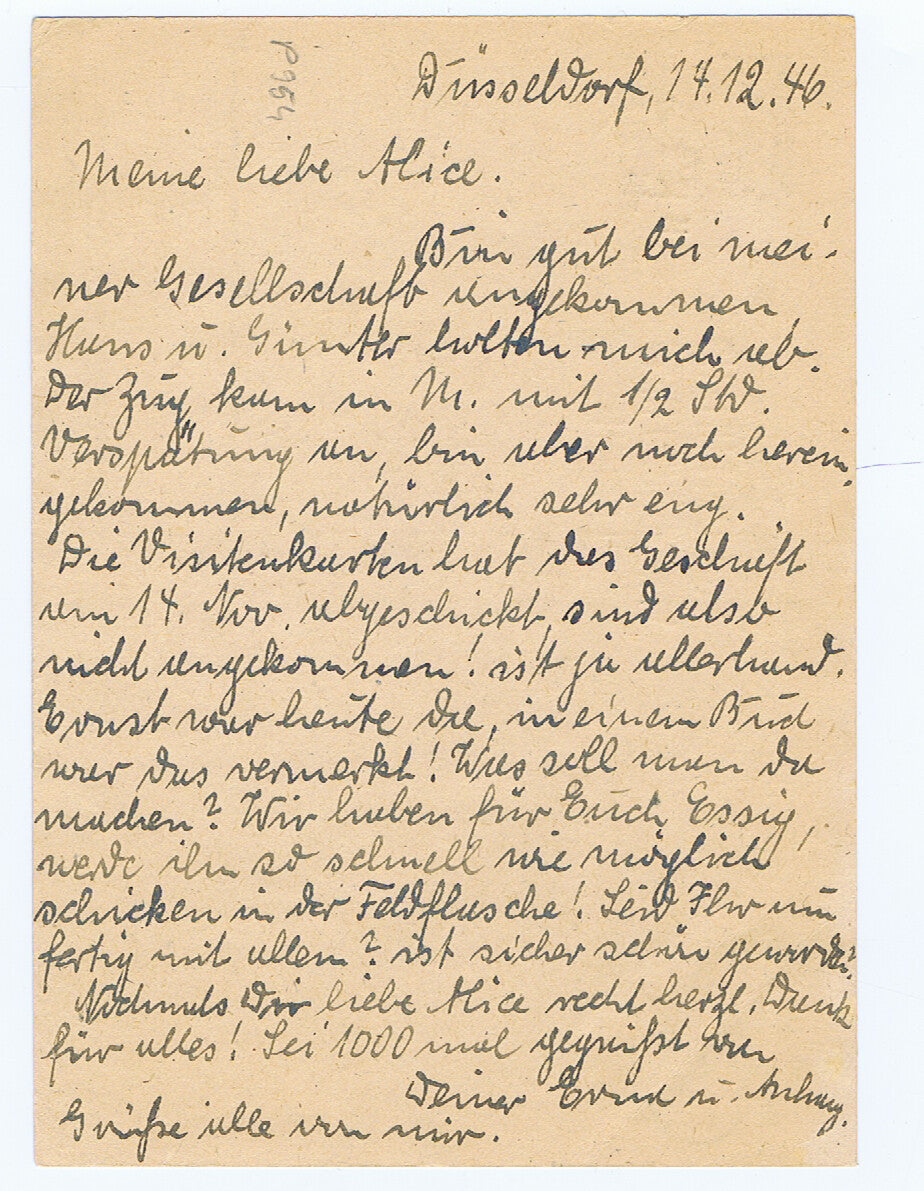 P954
Düsseldorf, 17.12.46.
Meine liebe Alice.
Bin gut bei mei-
ner Gesellschaft angekommen,
Hans u. Günter holten mich ab.
Der Zug kam in M. mit 1/2 Std.
Verspätung an, bin aber noch herein-
gekommen, natürlich sehr eng.
Die Visitenkarten hat das Geschäft
am 14. Nov. abgeschickt, sind also
nicht angekommen! ist ja allerhand.
Ernst war heute da, in einem Buch
war das vermerkt! Was soll man da
machen? Wir haben für Euch Essig,
werde ihn so schnell wie möglich
schicken in der Feldflasche! Seid Ihr nun
fertig mit allem? ist sicher schön geworden?
Nochmals Dir liebe Alice recht herzl. Dank
für alles! Sei 1000 mal gegrüßt von
Deiner u. Anhang.
Grüße alle von mir.